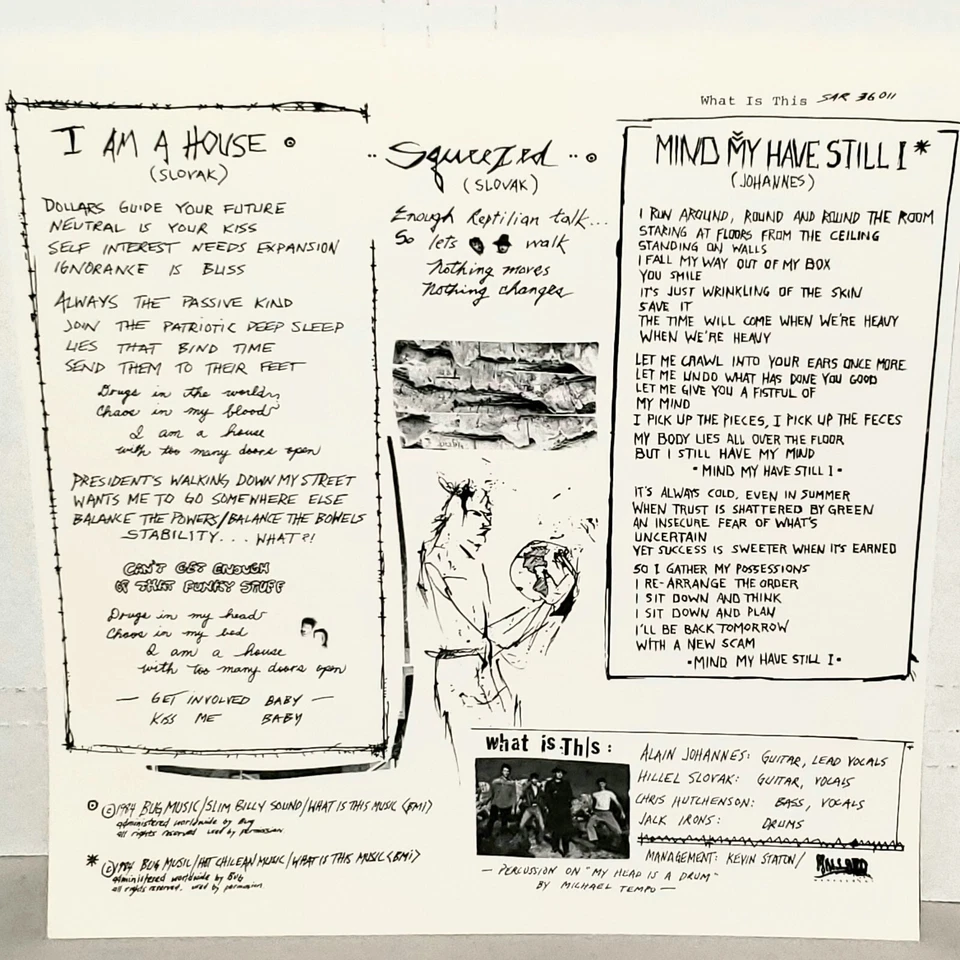 What Is This SAR 36011
I AM A HOUSE
(SLOVAK)
DOLLARS GUIDE YOUR FUTURE
NEUTRAL IS YOUR KISS
SELF INTEREST NEEDS EXPANSION
IGNORANCE IS BLISS
ALWAYS THE PASSIVE KIND
JOIN THE PATRIOTIC DEEP SLEEP
LIES THAT BIND TIME
SEND THEM TO THEIR FEET
Drugs in the world
Chaos in my blood
I am a house
with too many doors open
PRESIDENT'S WALKING DOWN MY STREET
WANTS ME TO GO SOMEWHERE ELSE
BALANCE THE POWERS/BALANCE THE BOWELS
STABILITY... WHAT?!
CAN'T GET ENOUGH
OF THAT FUNKY STUFF
Drugs in my head
Chaos in my bed
I am a house
with too many doors open
— GET INVOLVED BABY —
KISS ME BABY
·· Squeezed ··
(SLOVAK)
Enough Reptilian talk...
So lets walk
Nothing moves
Nothing changes
MIND MY HAVE STILL I *
(JOHANNES)
I RUN AROUND, ROUND AND ROUND THE ROOM
STARING AT FLOORS FROM THE CEILING
STANDING ON WALLS
I FALL MY WAY OUT OF MY BOX
YOU SMILE
IT'S JUST WRINKLING OF THE SKIN
SAVE IT
THE TIME WILL COME WHEN WE'RE HEAVY
WHEN WE'RE HEAVY
LET ME CRAWL INTO YOUR EARS ONCE MORE
LET ME UNDO WHAT HAS DONE YOU GOOD
LET ME GIVE YOU A FISTFUL OF
MY MIND
I PICK UP THE PIECES, I PICK UP THE FECES
MY BODY LIES ALL OVER THE FLOOR
BUT I STILL HAVE MY MIND
• MIND MY HAVE STILL I •
IT'S ALWAYS COLD, EVEN IN SUMMER
WHEN TRUST IS SHATTERED BY GREEN
AN INSECURE FEAR OF WHAT'S
UNCERTAIN
YET SUCCESS IS SWEETER WHEN IT'S EARNED
SO I GATHER MY POSSESSIONS
I RE-ARRANGE THE ORDER
I SIT DOWN AND THINK
I SIT DOWN AND PLAN
I'LL BE BACK TOMORROW
WITH A NEW SCAM
• MIND MY HAVE STILL I •
©1984 BUG MUSIC/SLIM BILLY SOUND/WHAT IS THIS MUSIC <BMI>
administered worldwide by Bug
all rights reserved used by permission
* ©1984 BUG MUSIC/HOT CHILEAN MUSIC/WHAT IS THIS MUSIC <BMI>
administered worldwide by BUG
all rights reserved. used by permission
what is This:
ALAIN JOHANNES: GUITAR, LEAD VOCALS
HILLEL SLOVAK: GUITAR, VOCALS
CHRIS HUTCHENSON: BASS, VOCALS
JACK IRONS: DRUMS
MANAGEMENT: KEVIN STATON/
— PERCUSSION ON "MY HEAD IS A DRUM"
BY MICHAEL TEMPO —